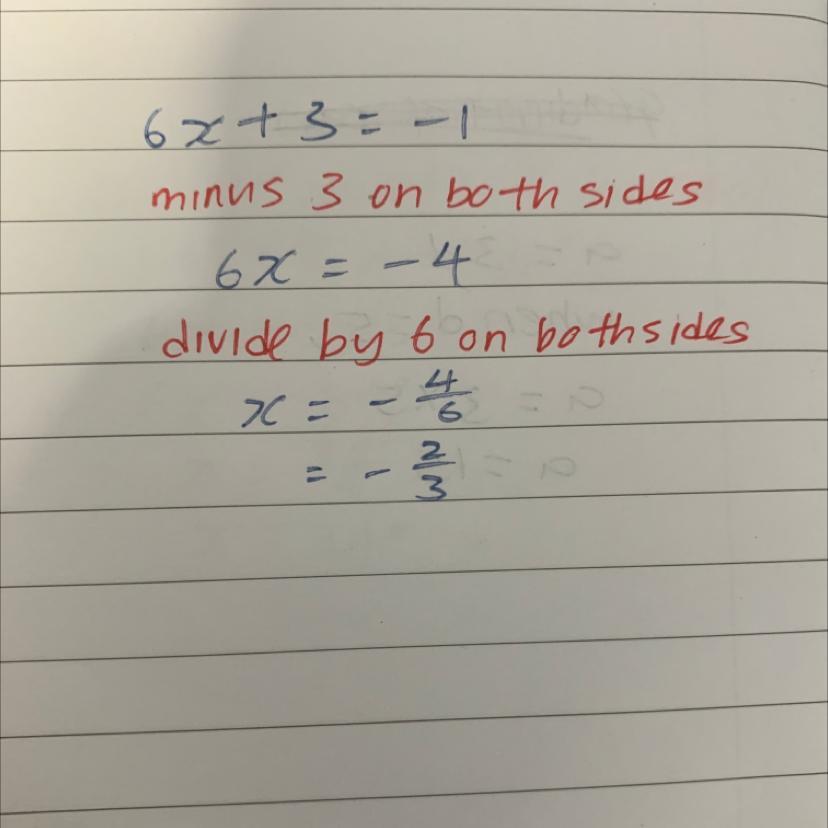 6x + 3 = -1
minus 3 on both sides
6x = -4
divide by 6 on both sides
x = - 4/6
= - 2/3